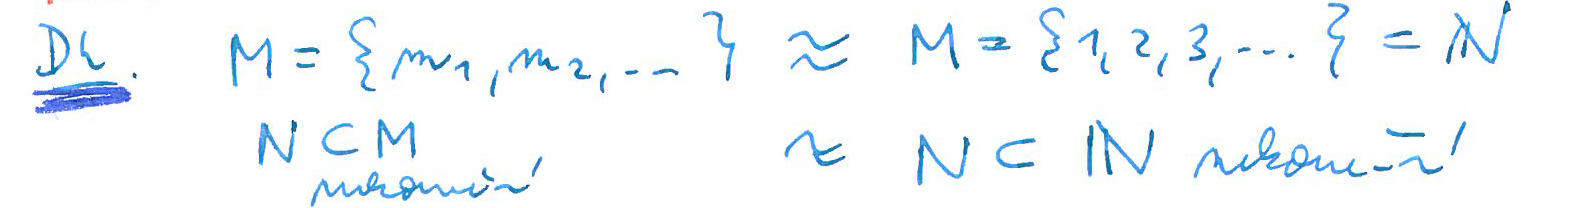 Dk. M = {m₁, m₂, ...} ≈ M = {1, 2, 3, ...} = ℕ
N ⊂ M ≈ N ⊂ ℕ nekonečná
nekonečná